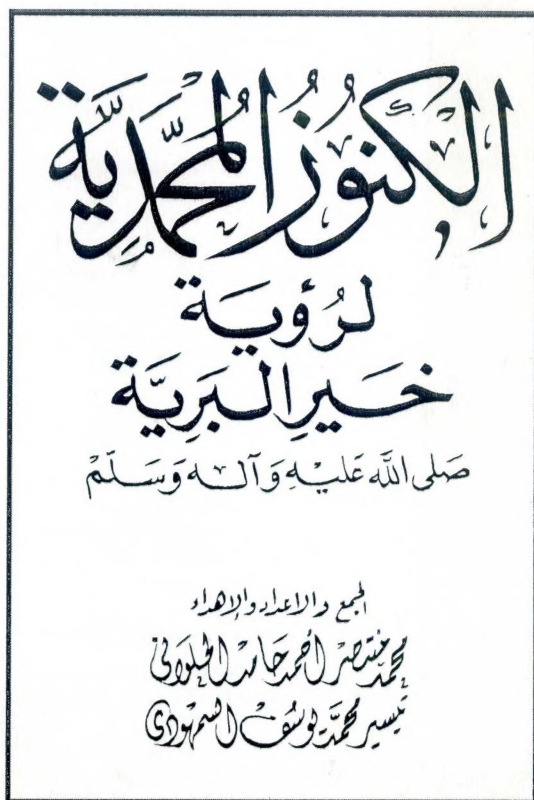 الكنوزُ المُحمَّديَّة
لرُؤيَة
خَيرِ البَرِيَّة
صَلى اللَّه عَليْهِ وَآلهِ وَسَلّمْ
الجمع والاعداد والإهداء
محمد منتصر أحمد حامد الحلواني
تيسير محمد يوسف السمهودي